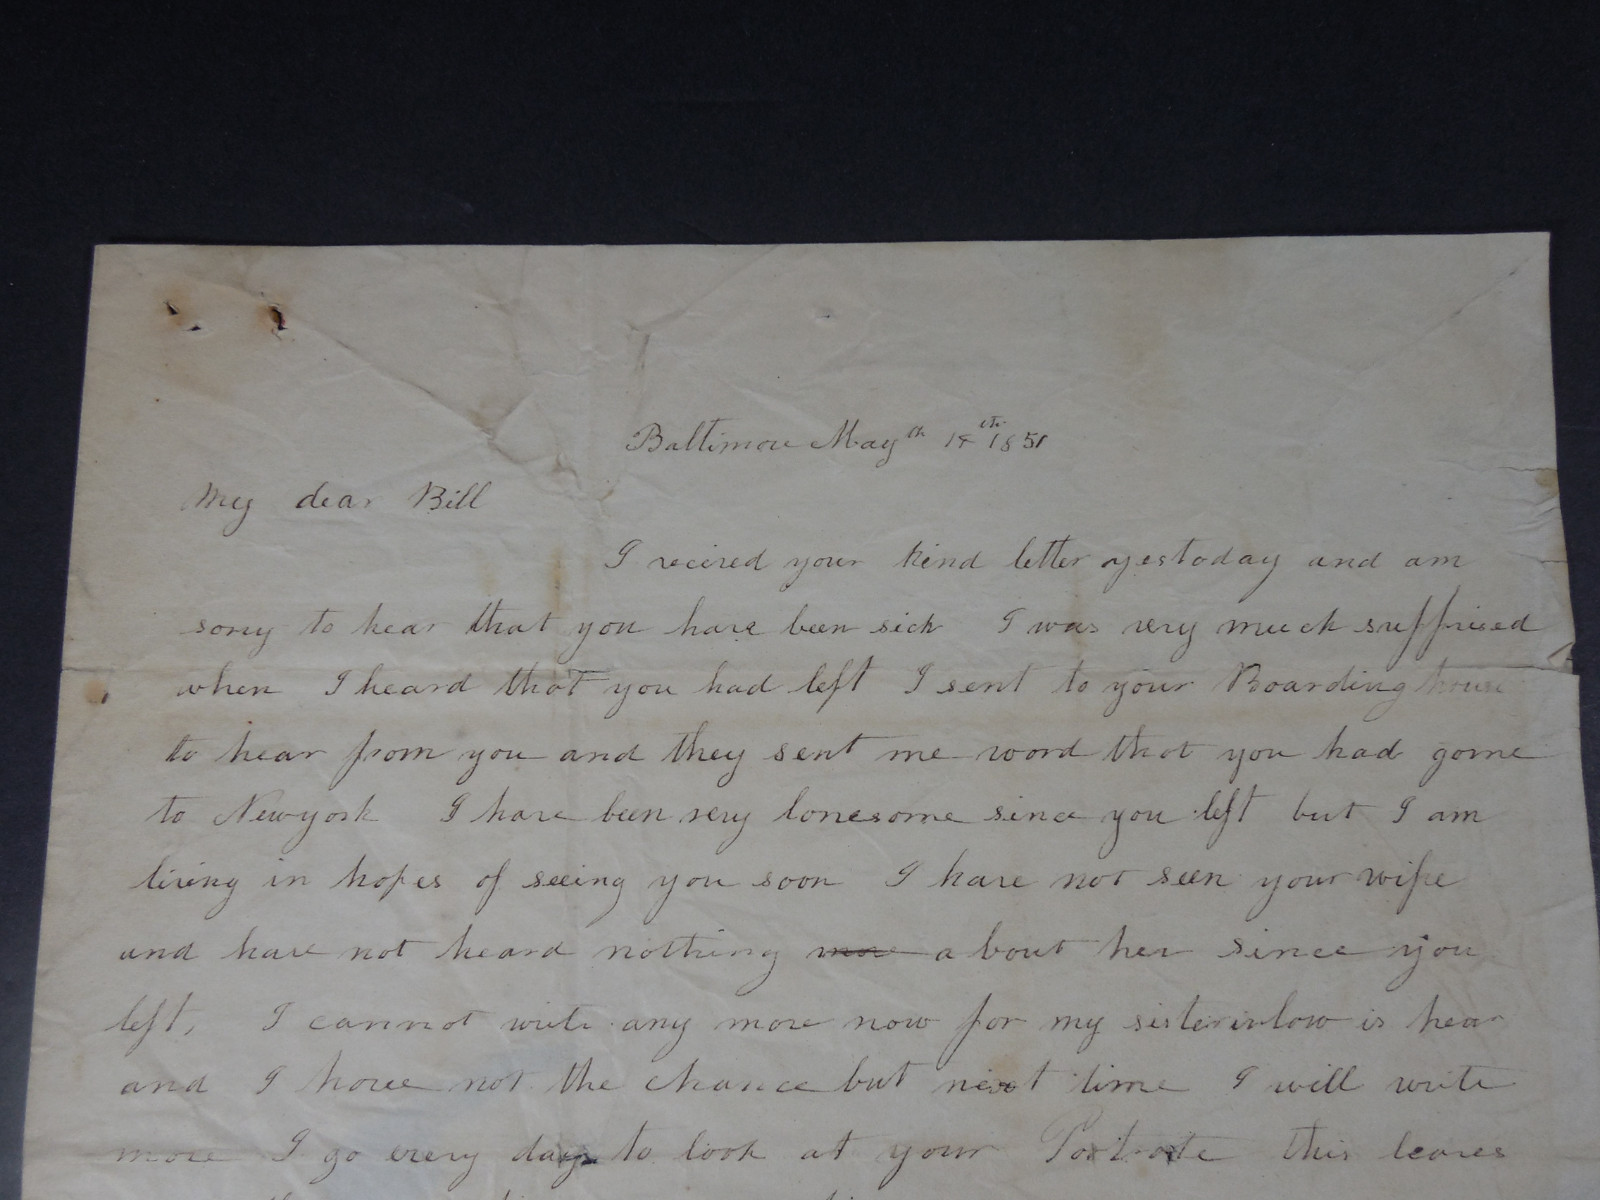 Baltimore May th 14th 1851
My dear Bill
I recived your kind letter yestoday and am
sorry to hear that you have been sick I was very much suffrised
when I heard that you had left I sent to your Boarding house
to hear from you and they sent me word that you had gorne
to Newyork I have been very lonesome since you left but I am
living in hopes of seeing you soon I have not seen your wife
and have not heard nothing more about her since you
left, I cannot write any more now for my sisterinlow is hear
and I have not the chance but next time I will write
more I go every day to look at your Portrate this leaves